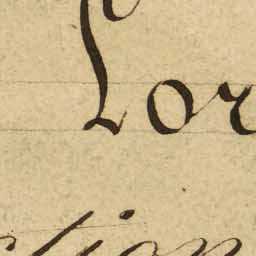 Lor
ction